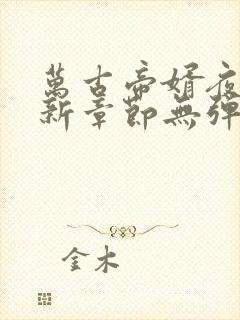 萬古帝婿夜
新章節無彈
金木